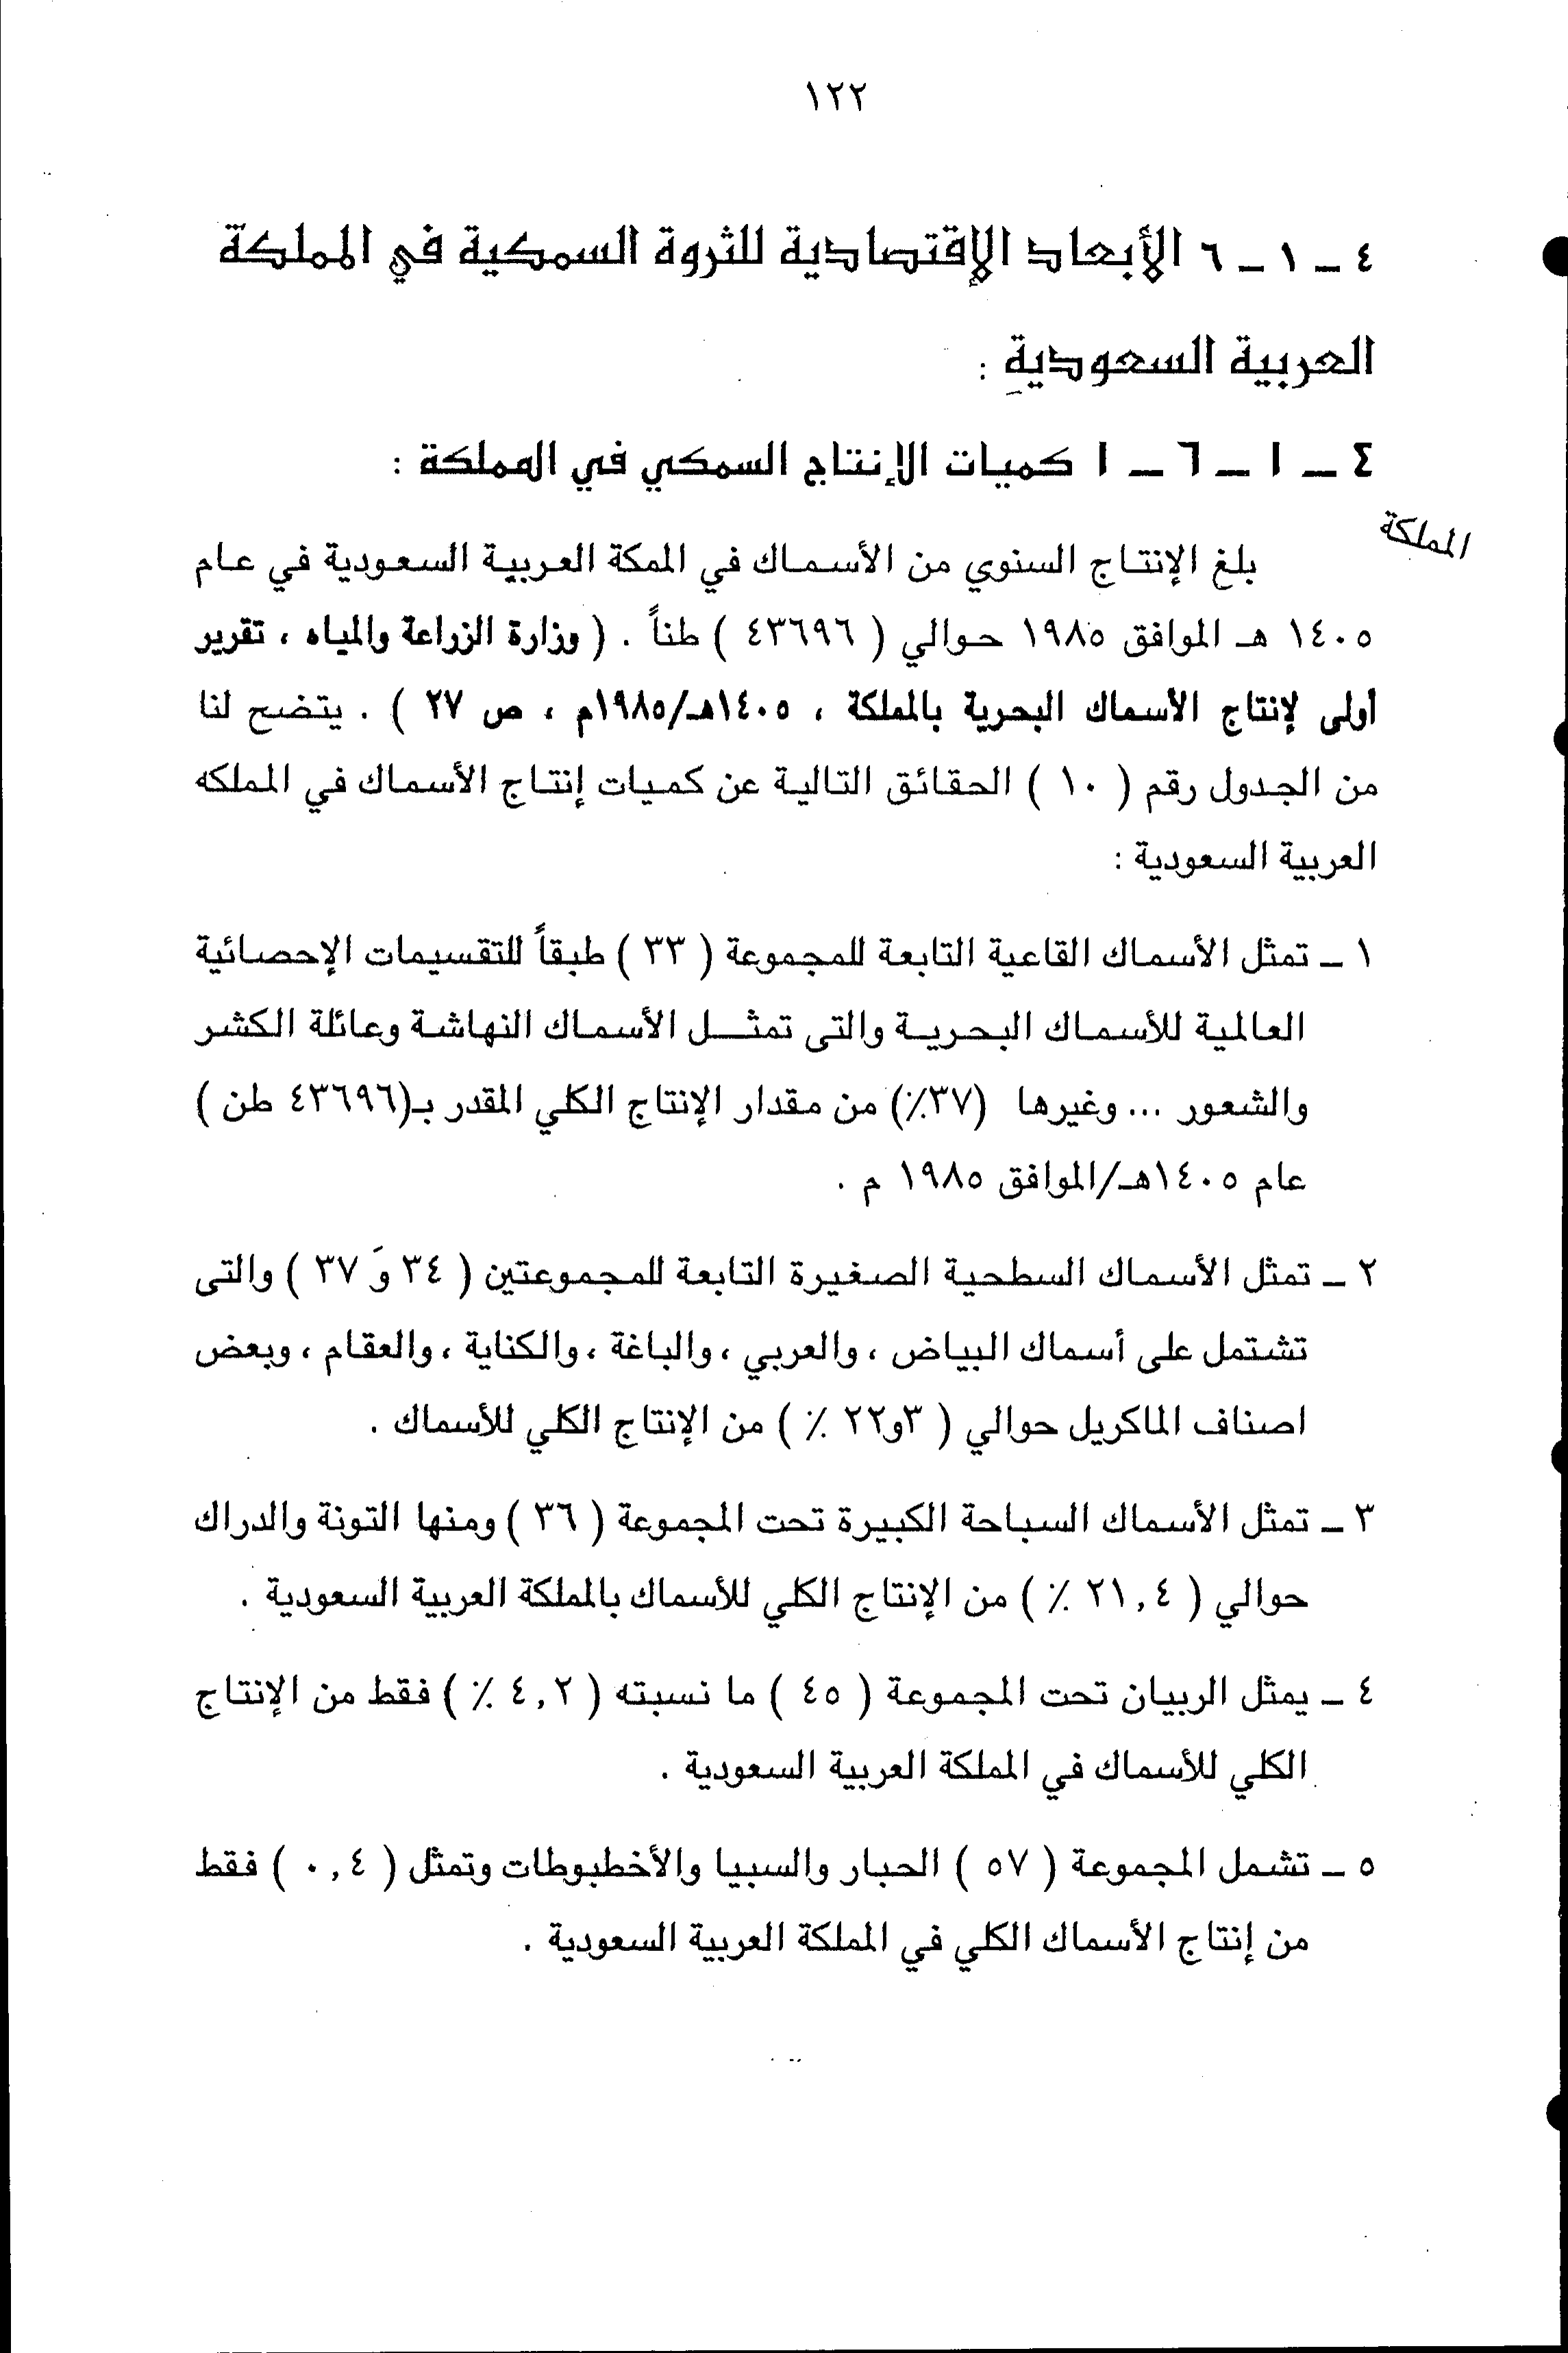 ١٢٢
٤ – ١ – ٦ الأبعاد الإقتصادية للثروة السمكية في المملكة
العربية السعودية :
٤ – ١ – ٦ – ١ كميات الإنتاج السمكي في المملكة :
المملكة
بلغ الإنتاج السنوي من الأسماك في المكة العربية السعودية في عام
١٤٠٥ هـ الموافق ١٩٨٥ حوالي ( ٤٣٦٩٦ ) طناً . ( وزارة الزراعة والمياه ، تقرير
أولى لإنتاج الأسماك البحرية بالمملكة ، ١٤٠٥هـ/١٩٨٥م ، ص ٢٧ ) . يتضح لنا
من الجدول رقم ( ١٠ ) الحقائق التالية عن كميات إنتاج الأسماك في المملكه
العربية السعودية :
١ – تمثل الأسماك القاعية التابعة للمجموعة ( ٣٣ ) طبقاً للتقسيمات الإحصائية
العالمية للأسماك البحرية والتى تمثل الأسماك النهاشة وعائلة الكشر
والشعور ... وغيرها (٣٧٪) من مقدار الإنتاج الكلي المقدر بـ(٤٣٦٩٦ طن )
عام ١٤٠٥هـ/الموافق ١٩٨٥ م .
٢ – تمثل الأسماك السطحية الصغيرة التابعة للمجموعتين ( ٣٤ وَ ٣٧ ) والتى
تشتمل على أسماك البياض ، والعربي ، والباغة ، والكناية ، والعقام ، وبعض
اصناف الماكريل حوالي ( ٣و٢٢ ٪ ) من الإنتاج الكلي للأسماك .
٣ – تمثل الأسماك السباحة الكبيرة تحت المجموعة ( ٣٦ ) ومنها التونة والدراك
حوالي ( ٢١,٤ ٪ ) من الإنتاج الكلي للأسماك بالمملكة العربية السعودية .
٤ – يمثل الربيان تحت المجموعة ( ٤٥ ) ما نسبته ( ٤,٢ ٪ ) فقط من الإنتاج
الكلي للأسماك في المملكة العربية السعودية .
٥ – تشمل المجموعة ( ٥٧ ) الحبار والسبيا والأخطبوطات وتمثل ( ٠,٤ ) فقط
من إنتاج الأسماك الكلي في المملكة العربية السعودية .